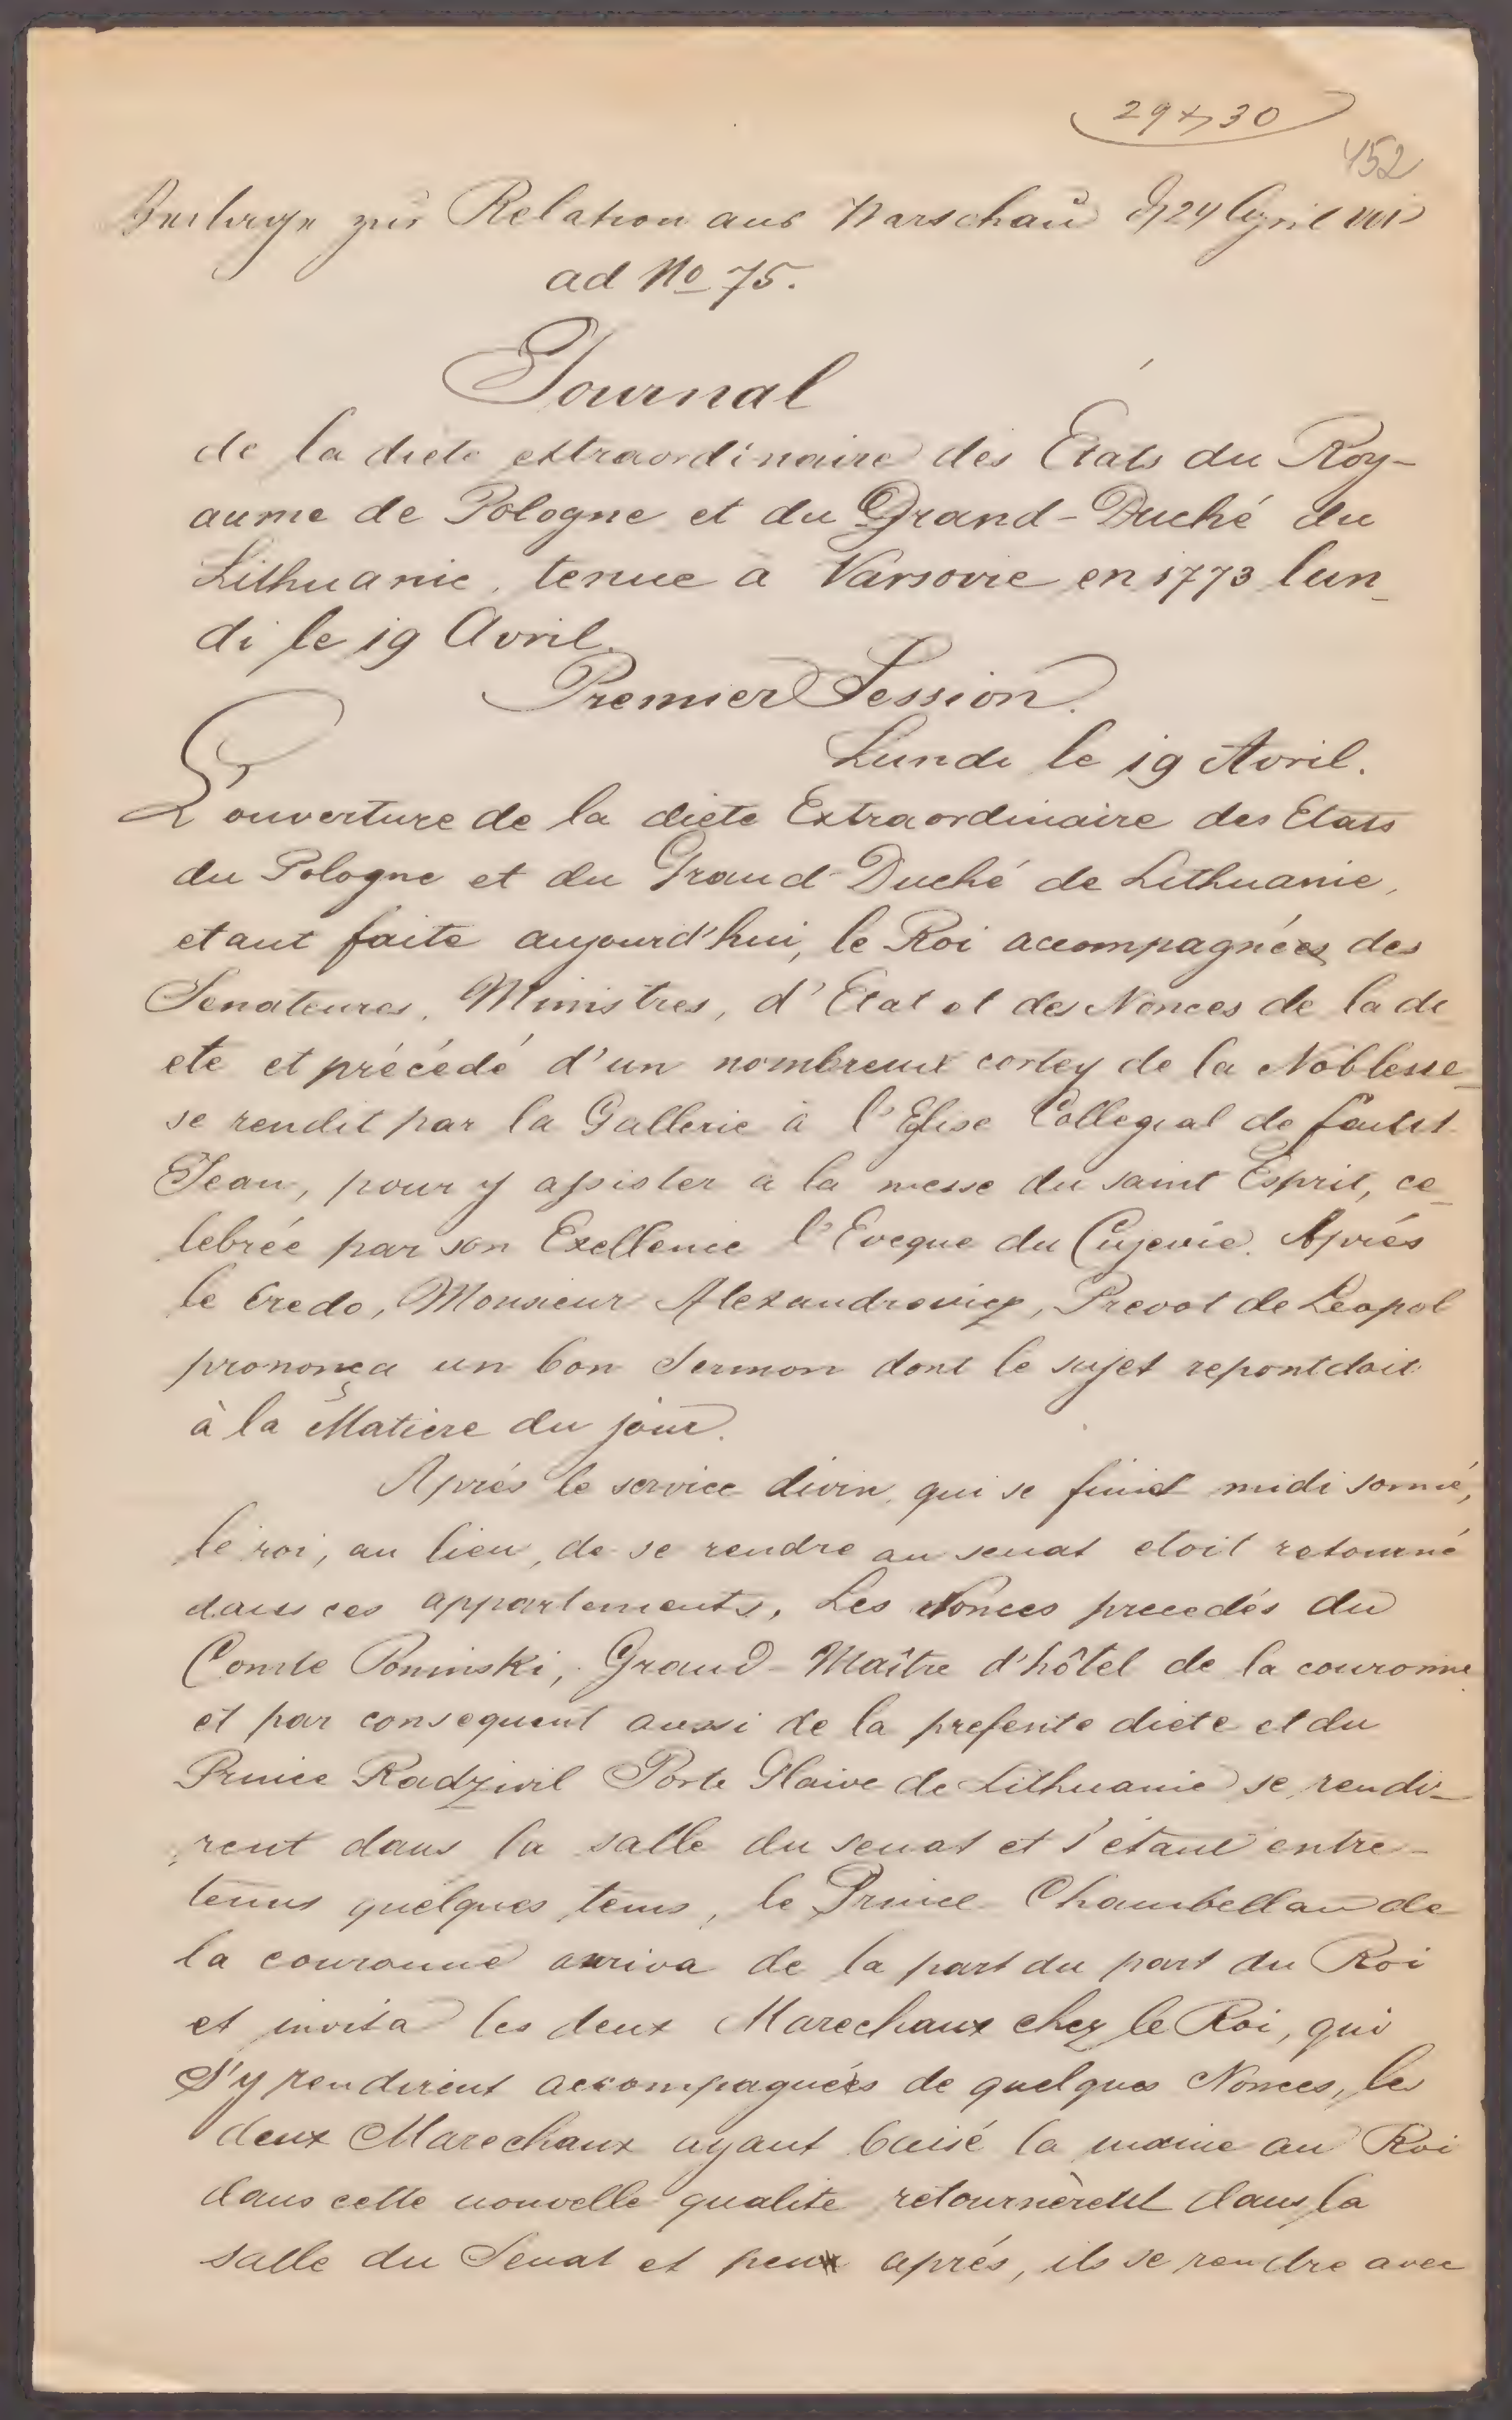 29 x 30
152
Beilage zur Relation aus Warschau d 24 April
ad No 75.
Journal
de la diete extraordinaire des Etats du Roy-
aume de Pologne et du Grand-Duché du
Lithuanie, tenue à Varsovie en 1773 lun-
di le 19 Avril.
Premier Session.
Lundi le 19 Avril.
L'ouverture de la diete Extraordinaire des Etats
du Pologne et du Grand Duché de Lithuanie,
etant faite aujourd'hui, le Roi accompagnées des
Senateures, Ministres, d'Etat et des Nonces de la di
ete et précédé d'un nombreux corteg de la Noblesse
se rendit par la Gallerie à l'Eglise Collegial de
Jean, pour y assister à la messe du saint Esprit, ce-
lebrée par son Exellence l'Eveque du Cujavie. Aprés
le Credo, Monsieur Alexandrowicz, Prevot de Leopol
prononça un bon Sermon dont le sujet repontdoit
à la Matiere du jour.
Aprés le service divin, qui se finit midi sonné,
le roi, au lieu, de se rendre au senat etoit retourné
dans ces appartements, Les Nonces precedés du
Comte Poninski, Grand-Maître d'hôtel de la couronne
et par consequent aussi de la presente diete et du
Prince Radzivil Porte Glaive de Lithuanie se rendi-
rent dans la salle du senat et s'étant entre-
tenus quelques tems, le Prince Chambellan de
la couronne arriva de la part du part du Roi
et invita les deux Marechaux chez le Roi, qui
s'y rendirent accompagnées de quelques Nonces, les
deux Marechaux ayant baisé la maine au Roi
dans cette nouvelle qualite retournèrent dans la
salle du Senat et peu après, ils se rendre avec